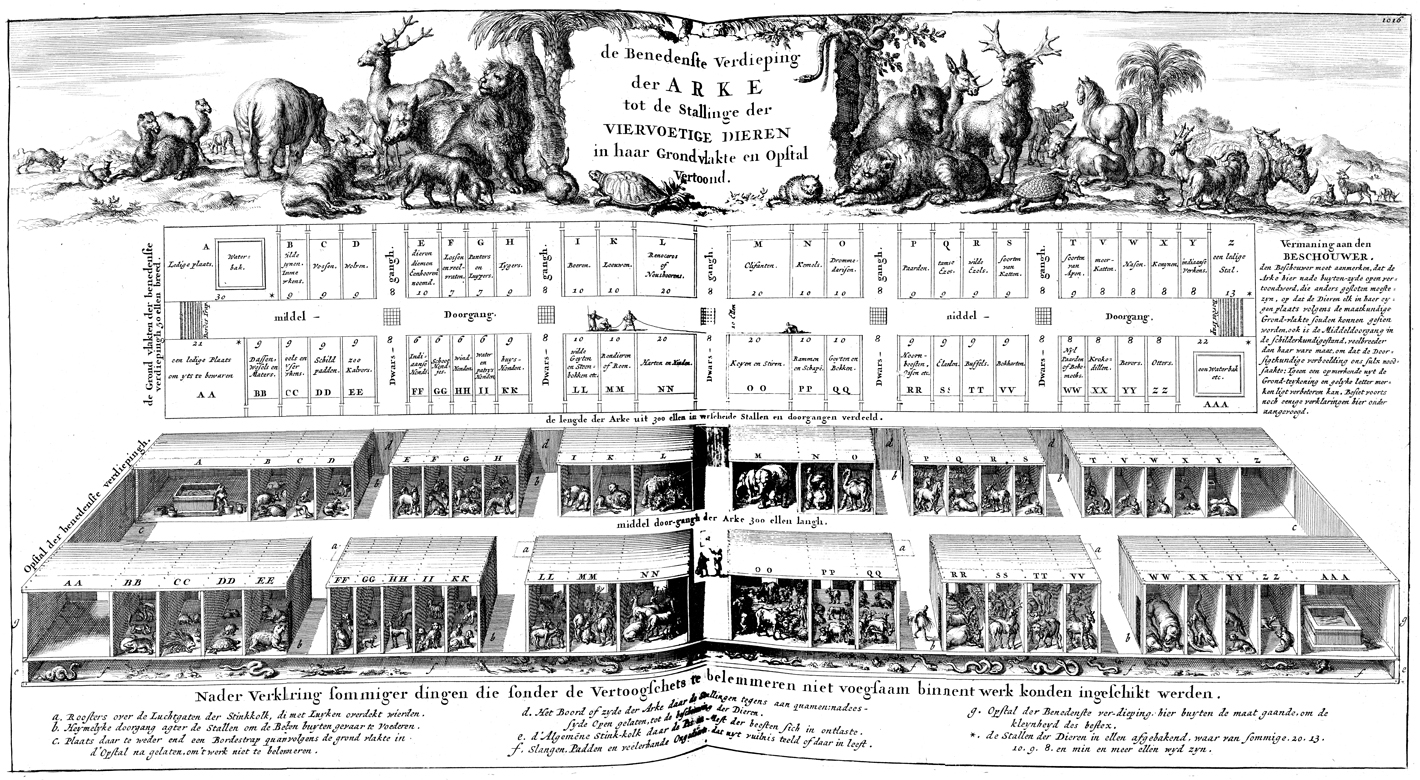 1016
de Benedenste Verdieping
der ARKE
tot de Stallinge der
VIERVOETIGE DIEREN
in haar Grondvlakte en Opstal
Vertoond.
de Grond vlakten der benedenste
verdiepingh 50 ellen breed
A
Ledige plaats.
Water-
bak.
30 *
B
wilde
9
C
Vossen.
9
D
Wolven.
9
gangh.
8
E
dieren
10
F
Lossen
7
G
Panters
en
Luypers.
7
H
Tygers.
9
gangh.
8
I
Beeren.
10
K
Leeuwen.
10
L
Renoceros
of
Neushoorns.
20
gangh.
8
M
Elifanten.
20
N
Kemels.
10
O
Dromme-
darisen.
10
gangh.
8
P
Paarden.
9
Q
tamse
Ezos.
9
R
wilde
Ezels.
9
S
soorten
van
Katten.
9
gangh.
8
T
soorten
van
Apen.
9
V
meer-
Katten.
8
W
Hasen.
8
X
Konynen.
8
Y
indiaanse
Verkens.
8
Z
een ledige
Stal.
13 *
middel - Doorgang. middel - Doorgang.
21 *
een ledige Plaats
om yts te bewaren
AA
9
Dassen.
Wesels en
Maters.
BB
9
CC
9
Schild
padden.
DD
9
zee
Kalvers.
EE
8
Dwars-
6
Indi-
aanse
Honde
FF
6
Schoot
Hond-
jes.
GG
6
Wind-
Honden
HH
6
Water
en
patrys
Honden
II
9
huys-
Honden.
KK
8
Dwars-
10
wilde
Geyten
en Steen-
bokken etc.
LL
10
Rendieren
of Reen.
MM
20
Harten en Hinden.
NN
8
Dwars-
20
Koyen en Stieren.
OO
10
Rammen
en Schape.
PP
10
Geyten en
Bokken.
QQ
8
Dwars-
9
Hoorn-
beesten,
Ossen etc.
RR
9
Elanden.
SS
9
Buffels.
TT
9
Bokharten.
VV
8
Dwars-
8
Nyl
Paarden
of Behe-
moths.
WW
8
Kroko-
dillen.
XX
8
Bevers.
YY
8
Otters.
ZZ
22 *
een Waterbak
etc.
AAA
Vermaning aan den
BESCHOUWER.
den Beschouwer moet aanmerken, dat de
Arke hier nade buyten-zyde open ver-
toond werd, die anders gesloten moeste-
zyn, op dat de Dieren elk in haer ey-
gen plaats volgens de maatkundige
Grond-vlakte souden konnen gesien
worden, ook is de Middeldoorgang in
de schilderkundige stand, veel breeder
dan haar ware maat, om dat de Door-
sigtkundige verbeelding ons sulx nood-
saakte:
Grond-teykening en gelyke letter mer-
ken ligt verbeteren kan. Besiet voorts
noch eenige verklaringen hier onder
aangevoegd.
de lengde der Arke uit 300 ellen in verscheide Stallen en doorgangen verdeeld.
Opstal der benedenste verdiepingh.
A B C D d E F G H d I K L M N O d P Q R S d T V W X Y Z
middel door-gangh der Arke 300 ellen langh.
AA BB CC DD EE FF GG HH II KK LL MM NN OO PP QQ RR SS TT VV WW XX YY ZZ AAA
Nader Verklring sommiger dingen die sonder de Vertoogschets te belemmeren niet voegsaam binnent werk konden ingeschikt werden.
a. Roosters over de Luchtgaten der Stinkkolk, di met Luyken overdekt wierden.
b. Heymelyke doorgang agter de Stallen om de Besten buyten gevaar te Voederen.
c. Plaats daar te weder end een Bordestrap quam volgens de grond vlakte in:
d'Opstal na gelaten, om't werk niet te belemeren.
d. Het Boord of zyde der Arke daar de Stallingen tegens aan quamen: nadoos-
syde Open gelaten, tot de beschouwing der Dieren.
e. d'Algemene Stink-kolk daar de Pis en Mest der beesten sich in ontlaste.
f. Slangen, Padden en veelerhande Ongedierte dat uyt vuilnis teeld of daar in leeft.
g. Opstal der Benedenste ver-dieping. hier buyten de maat gaande, om de
kleynheyd des bestex.
*. de Stallen der Dieren in ellen afgebakend, waar van sommige. 20. 13.
10. 9. 8. en min en meer ellen wyd zyn.